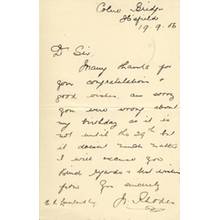 Bridge
19.9.06
D Sir.
Many thanks for
your congratulations &
good wishes. am sorry
you were wrong about
my birthday as it is
not until the 29th but
it doesnt much matter
I will excuse you
Kind regards & best wishes
from yrs sincerely
W. Rhodes